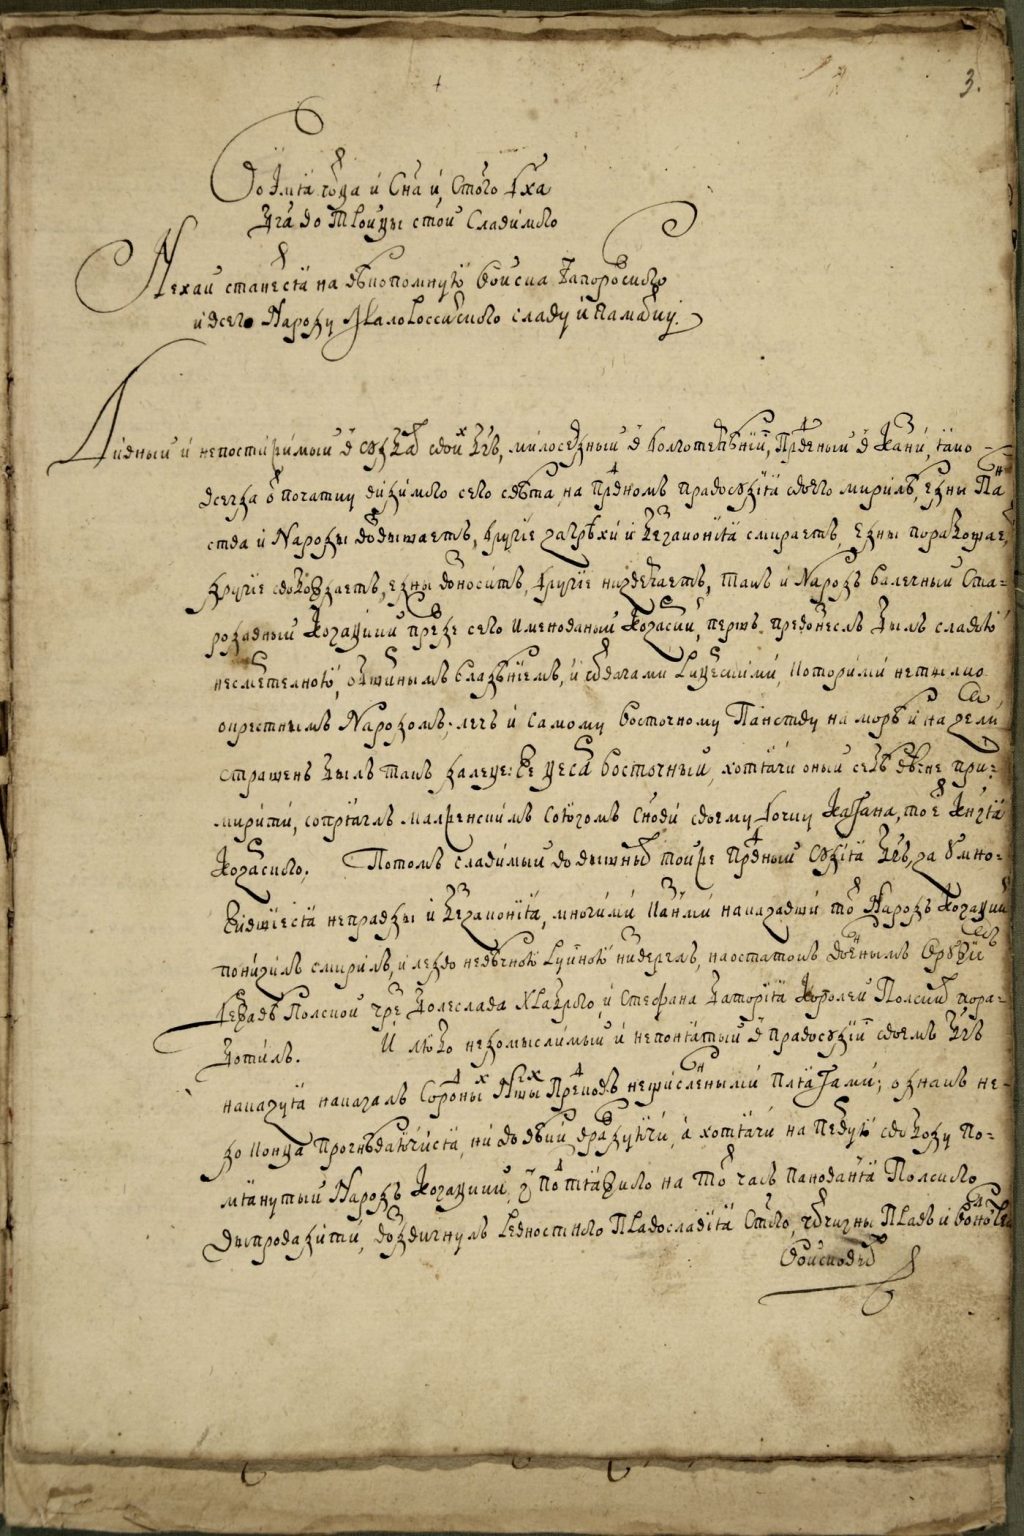 Во Имя Отца и Сна и Стого Дха
Бга во Тройцы стой славимого
Нехай станется на вѣкопомную Войска Запорозкого
и всего Народу Малороссійского славу и памятку.
Дивный и непостижимый в судбах своих Бгъ, милосердный в долготерпѣніи, Прведный в казни, яко
всегда от початку видимого сего свѣта, на првдномъ правосудія своего мирилѣ, едны Пан
ства и Народы возвышаетъ, другіе за грѣхи и беззаконія смираетъ, едны порабощае,
другіе свобождаетъ, едны возноситъ, другіе низвергаетъ, такъ и Народъ валечный Ста-
родавный Козацкий прежде сего именованый Козарскій, першъ превознеслъ былъ славою
несмертелною, обширнымъ владѣніемъ, и отвагами рицерскими, которими не тылко
окрестнымъ Народомъ, лечъ и самому Восточному Панству на морѣ и на земли
страшенъ былъ такъ далеце: же цесар Восточный, хотячи оный себѣ вѣчне при-
мирити, сопряглъ малженскимъ союзомъ Снови своему дочку Кагана, то е Князя
Козарского. Потомъ славимый во вышних той же Првдный Судія Бгъ, за умно-
жившіеся неправды и беззаконія, многими казнми наказавши той Народъ Козацкий
понизилъ смирилъ, и ледво не вѣчною руйною низверглъ, наостатокъ военнымъ оружіемъ
державѣ Полской чрез Болеслава Храброго, и Стефана Баторія Королей Полских пора-
ботилъ. И любо недомыслимый и непонятый в правосудіи своемъ Бгъ
наказуя наказалъ Предковъ незчислеными плягами; однакъ не
до конца прогнѣваючися, ни во вѣки враждуючи, а хотячи на первую свободу по-
мянутый Народъ Козацкий, з под тяжкого на той часъ панованя Полского
выпровадити, воздвигнулъ ревностного Православія Стого, отчизны Правъ и волностей
войсковых
3.